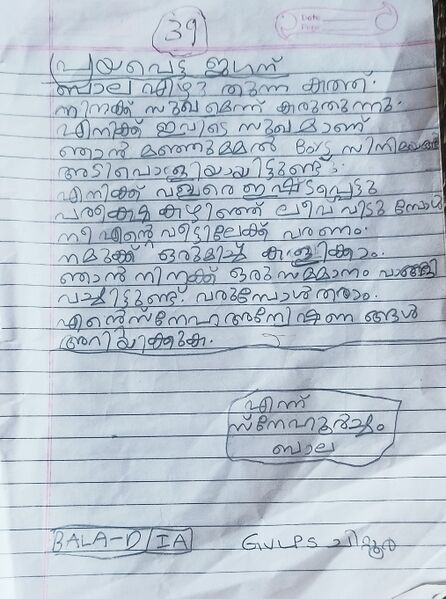 39
Date
Page
പ്രിയപ്പെട്ട ജഗന്
ബാല എഴുതുന്ന കത്ത്.
നിനക്ക് സുഖമെന്ന് കരുതുന്നു.
എനിക്ക് ഇവിടെ സുഖമാണ്
ഞാൻ മഞ്ഞുമ്മൽ Boys സിനിമ
അടിപൊളിയായിട്ടുണ്ട്.
എനിക്ക് വളരെ ഇഷ്ടപ്പെട്ടു
പരീക്ഷ കഴിഞ്ഞ് ലീവ് വിടുമ്പോൾ
നീ എന്റെ വീട്ടിലേക്ക് വരണം.
നമുക്ക് ഒരുമിച്ച് കളിക്കാം.
ഞാൻ നിനക്ക് ഒരു സമ്മാനം വാങ്ങി
വച്ചിട്ടുണ്ട്. വരുമ്പോൾ തരാം.
എൻ്റെ സ്നേഹ അന്വേഷണങ്ങൾ
അറിയിക്കുക.
എന്ന്
സ്നേഹപൂർവ്വം
ബാല
BALA-D/IA GVLPS ചിറ്റൂർ